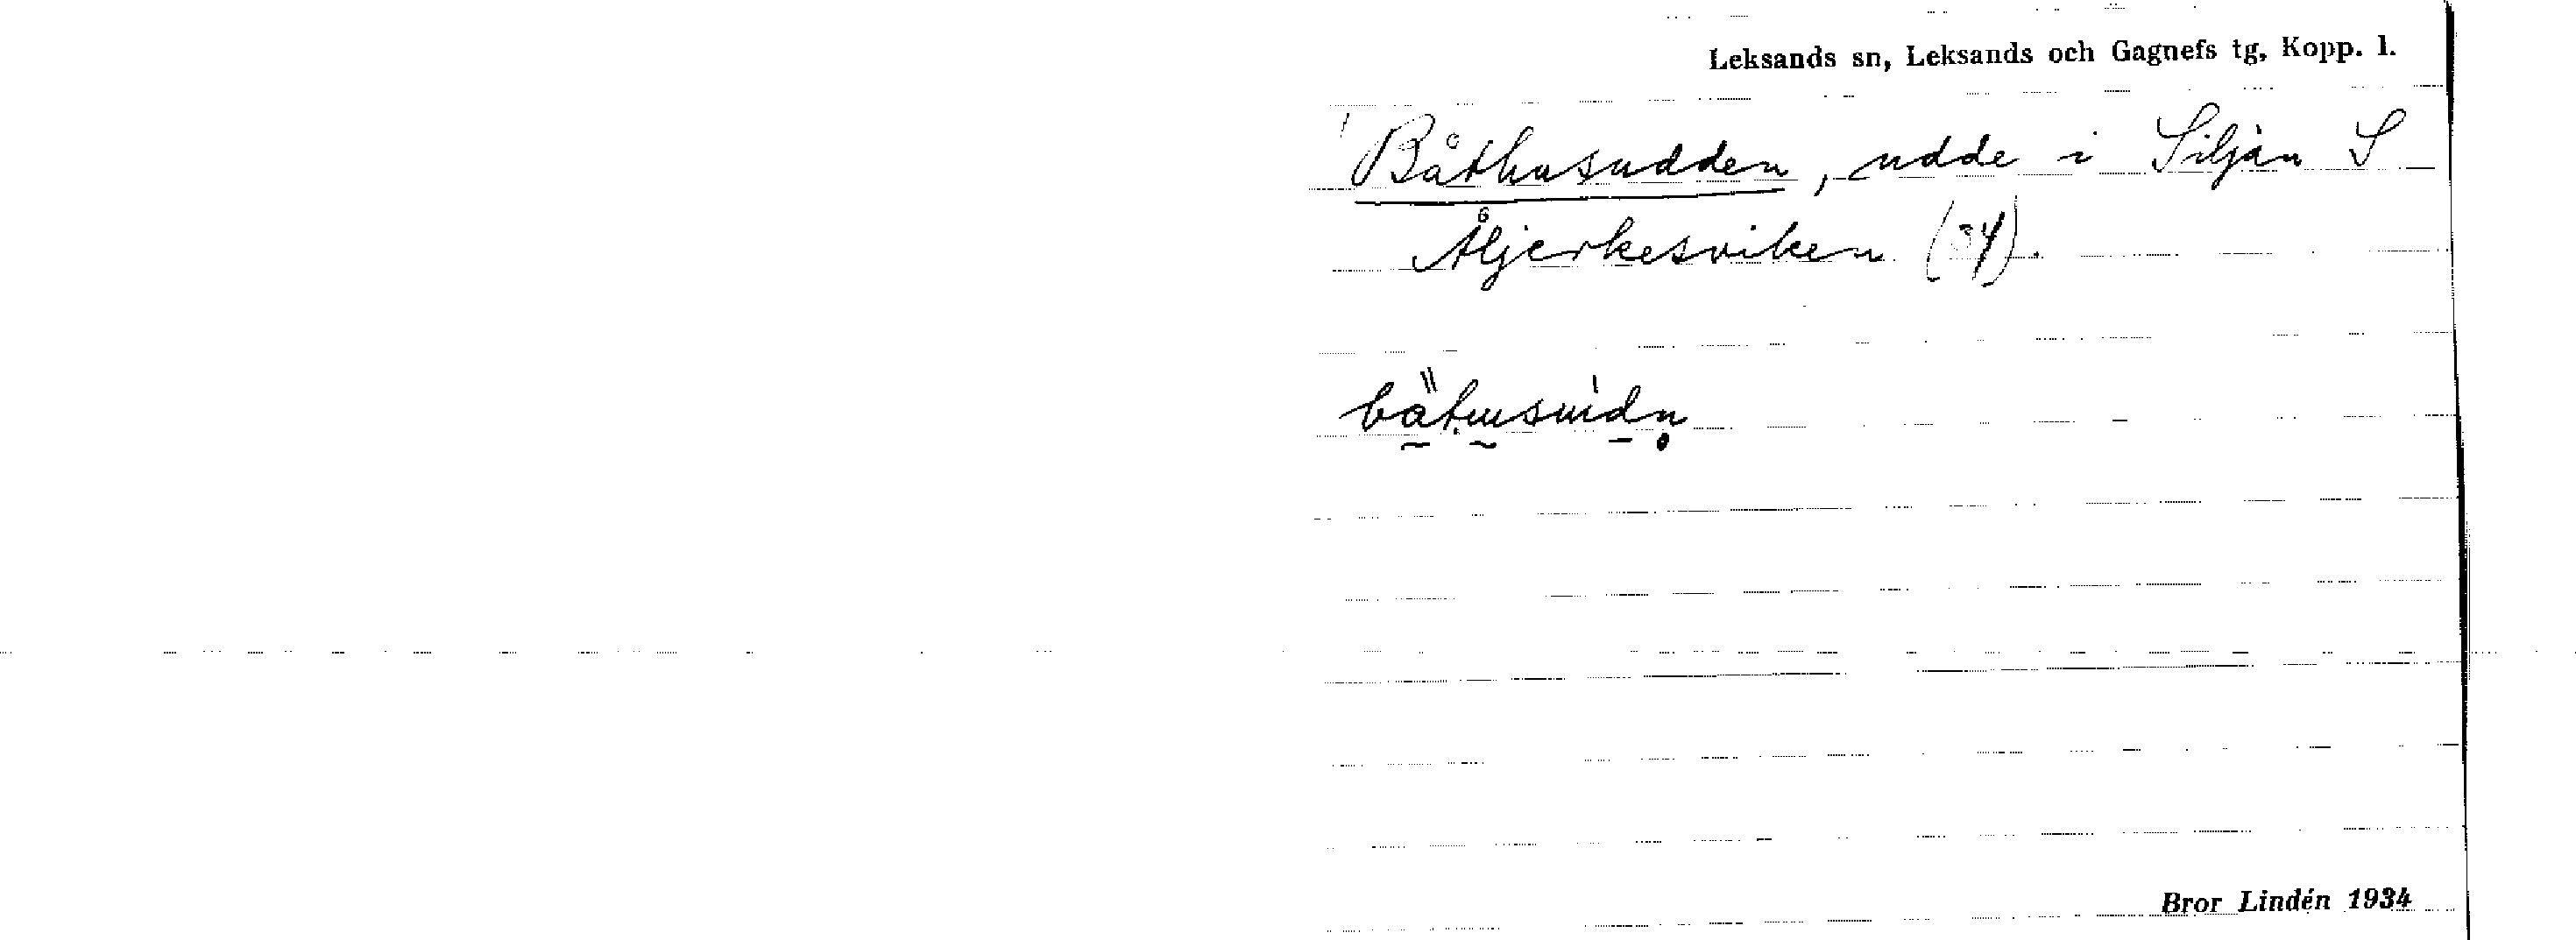 Leksands sn, Leksands och Gagnefs tg, Kopp. l.
Båthusudden, udde i Siljan S
Åljerkesviken (34).
Bror Lindén 1934